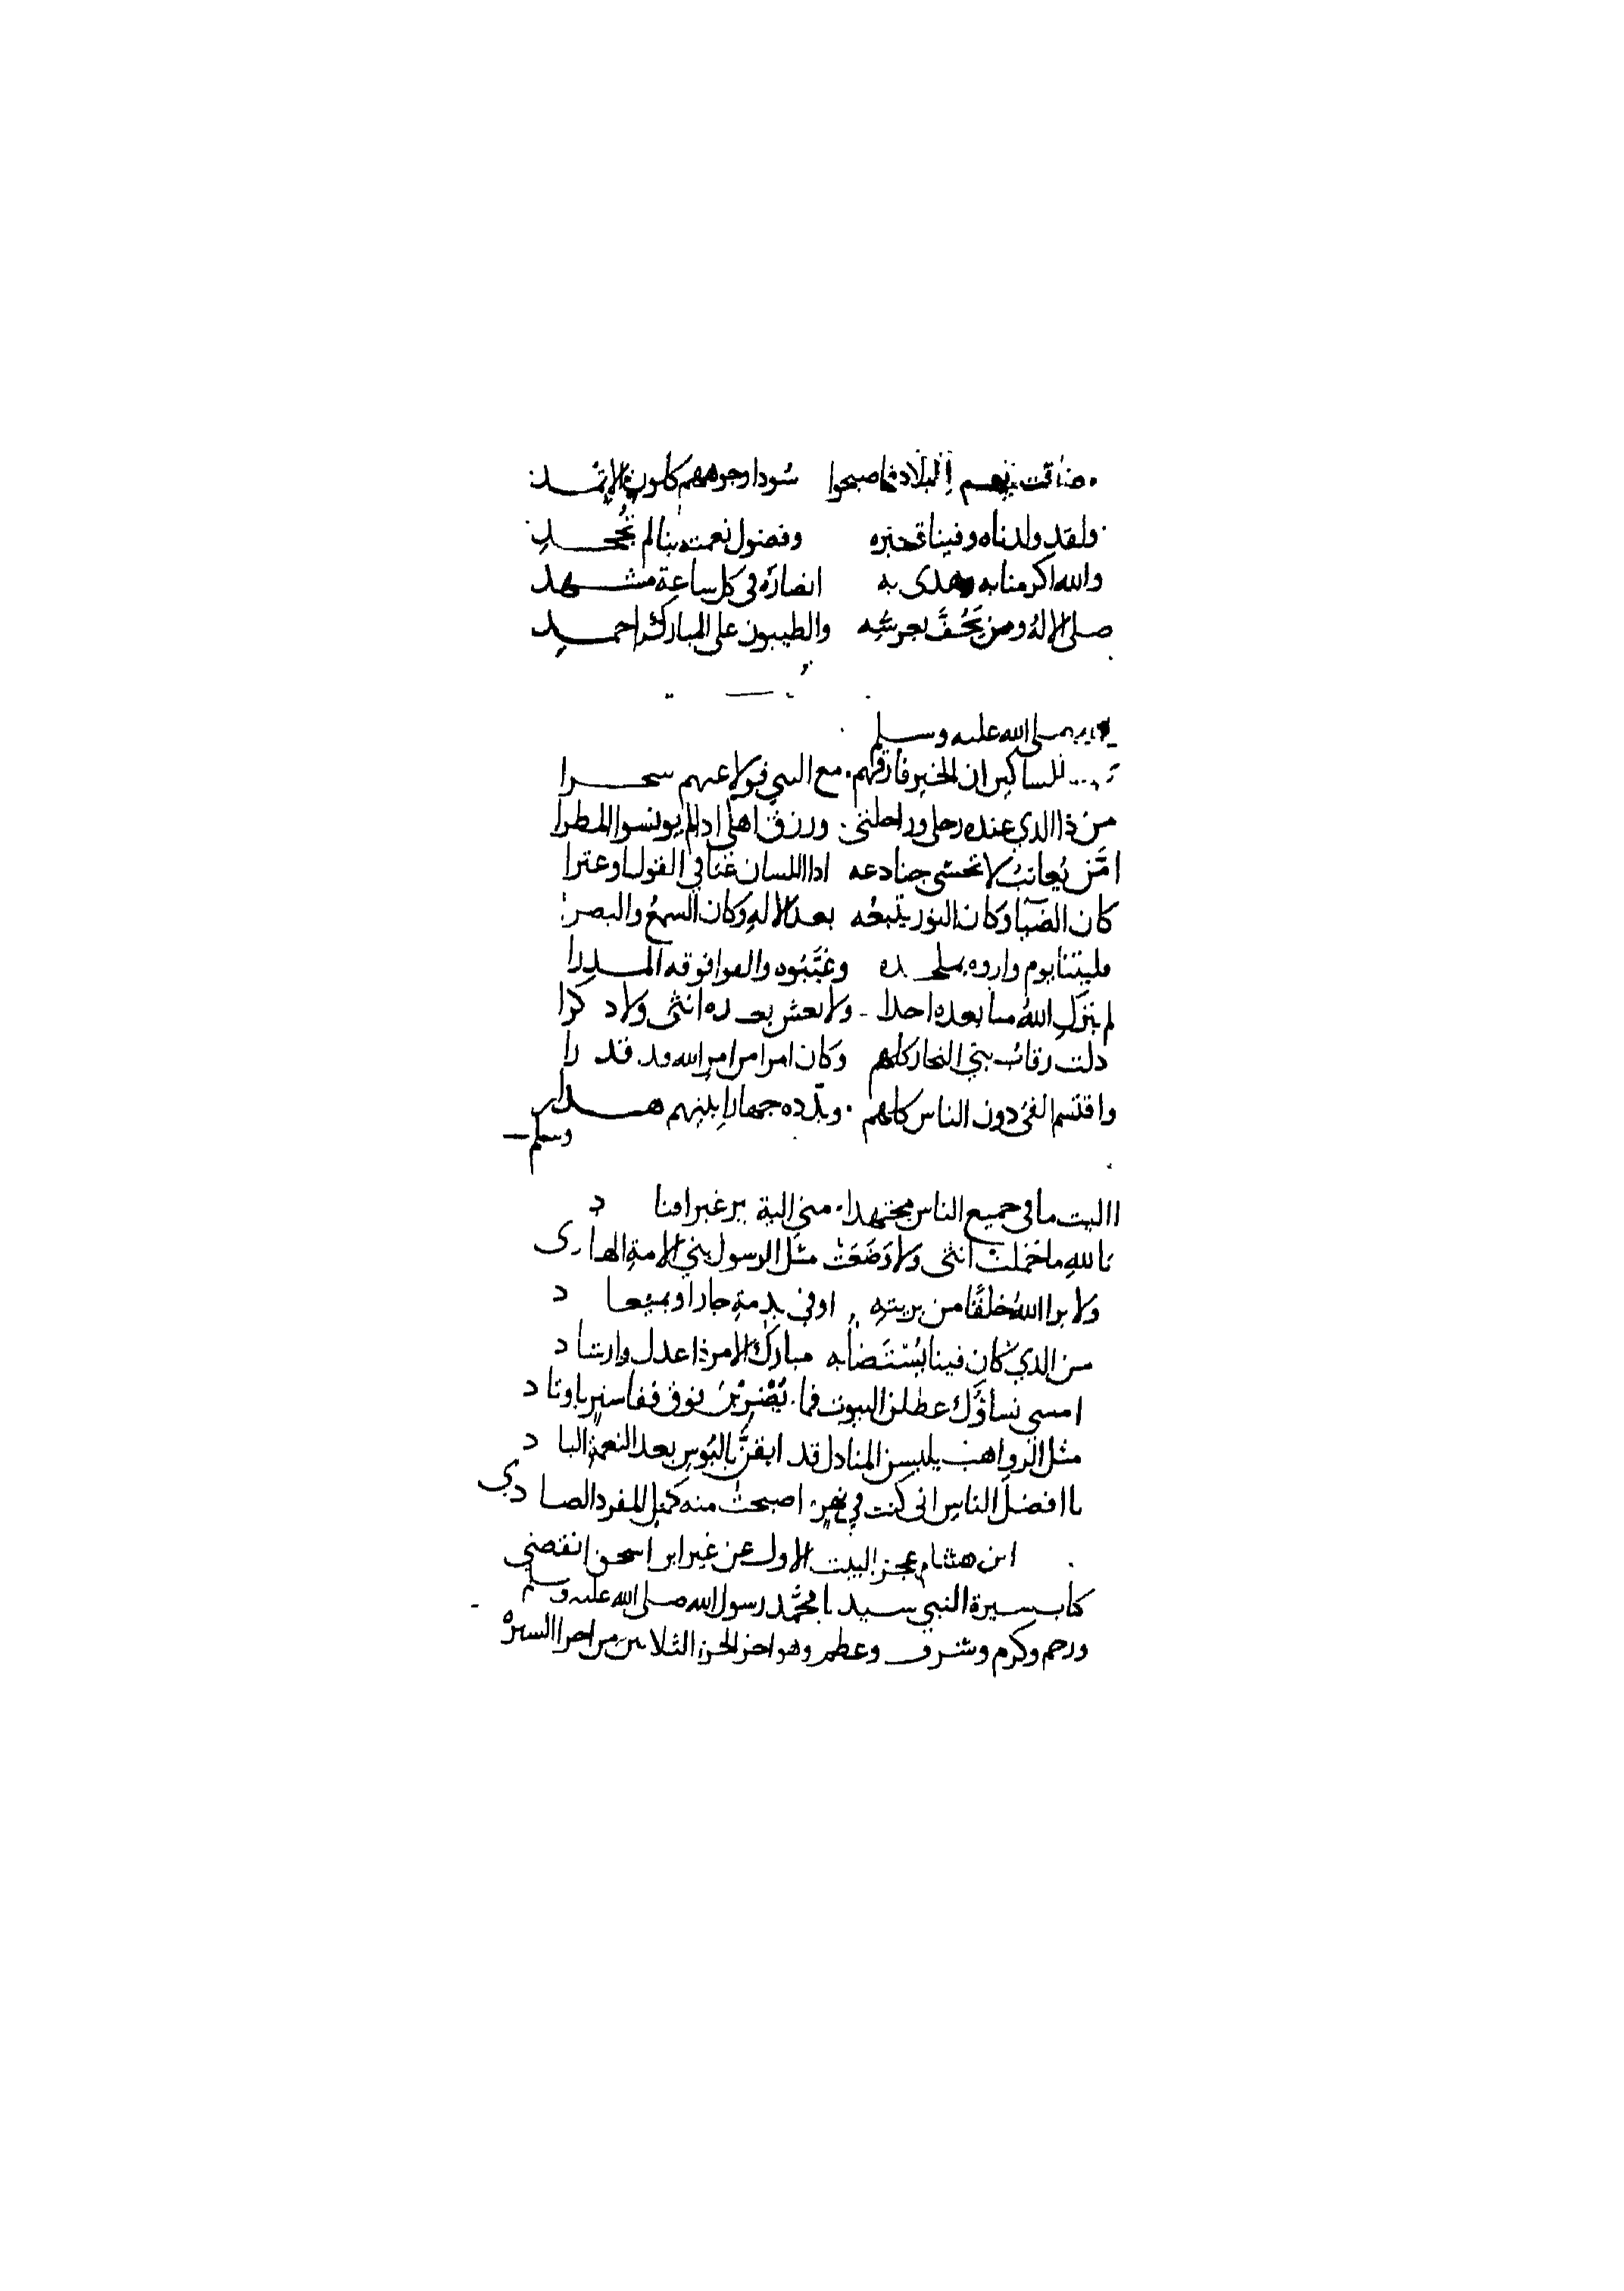 ضاقت بهم البلاد فاصبحوا سُودا وجوههم كلون الاثمد
ولقد ولدناه وفينا قبره وفضول نعمته بنا لم تُجحدِ
والله اكرمنا به وهدى به انصارَه في كل ساعةِ مشهد
صلى الالهُ ومن يَحُفُّ بعرشه والطيبون على المبارك احمدِ
صلى الله عليه وسلم
للساكين ان الخير فارقهم مع النبي تولا عنهم سحرا
من ذا الذي عنده رحلي وراحلتي ورزق اهلي اذا لم يونسوا المطرا
امَّن يُعاتبُ لا تخشى جنادعه اذا اللسان عتا في القول او عثرا
كان الضيا وكان النور يتبعُه بعد الالهِ وكان السمعُ والبصرا
فليتنا يوم واروه بملحده وغيَّبُوه والقوا فوقه المدرا
لم ينزكِ اللهُ منا بعده احدا ولا يعش بعده انثى ولا ذكرا
ذلت رقابُ بني النجار كلهم وكان امرا من امر الله قد قدرا
واقتسم الفئ دون الناس كلهم وبدّده جهارا بينهم هدرا
وسلم
اليت ما في جميع الناس مجتهدا مني الية بر غير افناد
تاللهِ ما حملت انثى ولا وَضَعَتْ مثل الرسول نبي الامةِ الهادى
ولا برا اللهُ خلقًا من بريتهِ اوفى بذمةِ جار او بميعاد
من الذي كان فينا يُسْتَضاُ به مبارك الامر ذا عدل وارشاد
امسى نساؤك عطلن البيوت فما يَضْرِبْنَ فوق قفا ستر باوتاد
مثل الرواهب يلبسن المباذل قد ايقنَّ بالبُوس بعد النعمة الباد
يا افضلَ الناس انى كنت في نهر اصبحتُ منه كمثل المفرد الصادي
ابن هشام عجز البيت الاول عن غير ابن اسحق انقضى
كتاب سيرة النبي سيدنا محمَّد رسول الله صلى الله عليه وسلم
ورحم وكرم وشرف وعظم وهو اخر الجزء الثلاثين من اجزا السيرة